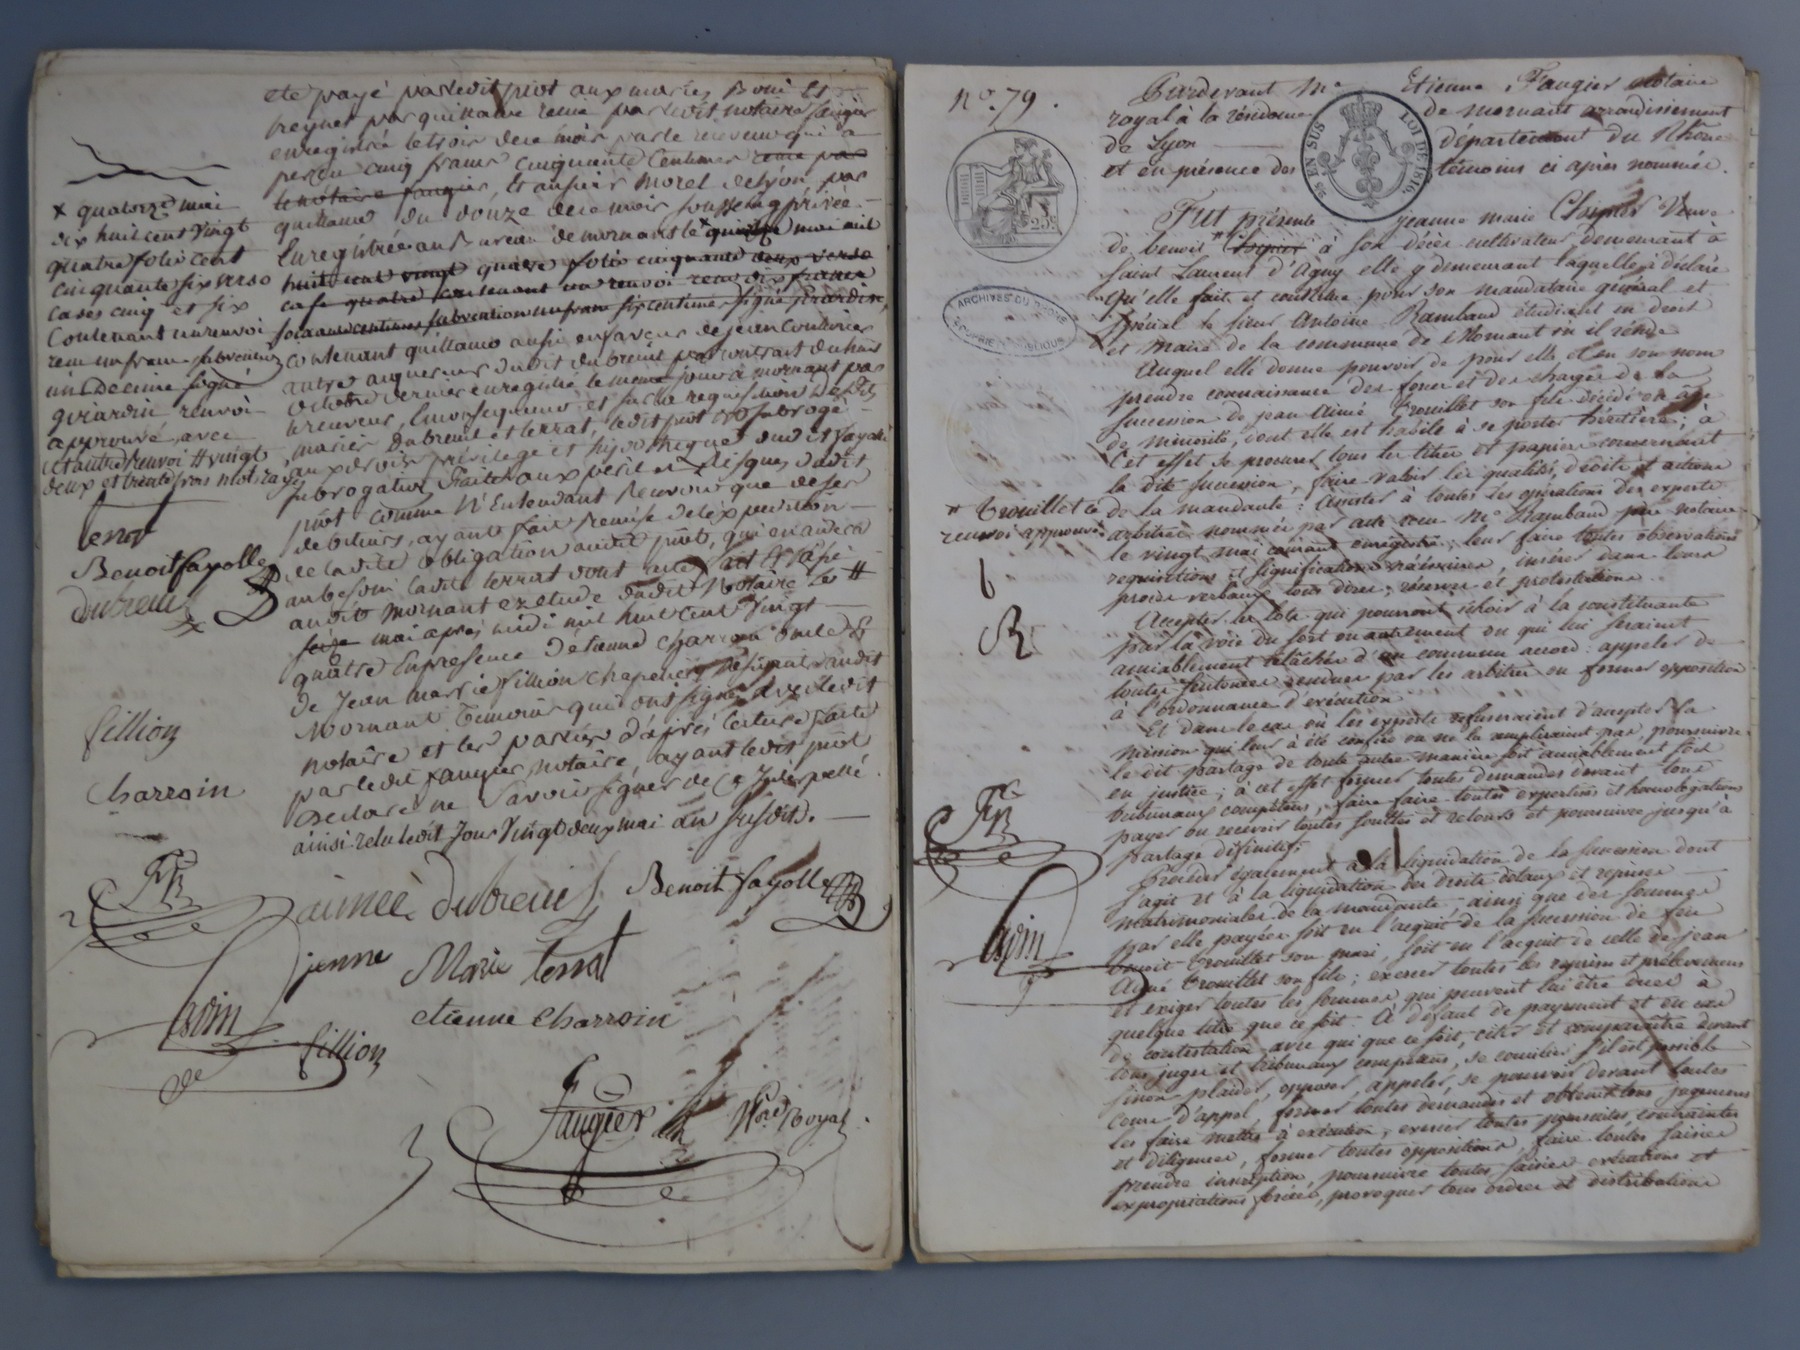 été payé par ledit piot aux mariés Boni et
peyner par quittance reçue par ledit notaire faugier
enregistré le trois de ce mois par le receveur qui a
perçu cinq francs cinquante centimes reçue par
le notaire faugier, et au sieur Morel de Lyon par
quittance du douze de ce mois sous seing privée
Enregistrée au Bureau de mornant le x quinze mai mil
huit cent vingt quatre folio cinquante deux verso
case quatre contenant un renvoi reçu dix francs
soixante centimes subvention un franc six centimes signé girardin,
contenant quittance aussi en faveur de jean
autre acquereur dudit dubreuil par contrat du huit
octobre dernier enregistré le meme jour à mornant par
le receveur, En conséquence et sur la requisition desdits
mariés Dubreuil et terrat, ledit piot est subrogé
aux droits privilege et hypotheque dudit fayolle
subrogation faite aux perils et risques dudit
piot comme N'Entendant Recevoir que de ses
debiteurs, ayant fait remise de l'expedition
de ladite obligation audit piot, qui en aidera
au besoin ladite terrat dont acte fait et passé
audit mornant en etude dudit Notaire Le #
seize mai après midi mil huit cent vingt
quatre En presence d'etienne charroin
de Jean marie fillion chapelier résidant audit
Mornant Temoins qui ont signé avec ledit
notaire et les parties d'après lecture faite
par ledit faugier notaire, ayant ledit piot
declaré ne savoir signer de ce Interpellé
ainsi relu ledit Jour Vingt deux mai an susdit.
x quatorze mai
dix huit cent vingt
quatre folio cent
cinquante six verso
cases cinq et six
Contenant un renvoi
reçu un franc subvention
un decime signé
girardin renvoi
approuvé, avec
et autre renvoi # vingt
deux et trente trois mots rayés
terrat
Benoit fayolle
dubreuil
fillion
Charroin
aimée dubreuil Benoit fayolle
jenne Marie terrat
etienne Charroin
fillion
Faugier Nre royal
No. 79.
Pardevant Me Etienne Faugier notaire
royal à la résidence de Mornant arrondissement
de Lyon département du Rhône
et en présence des témoins ci après nommés.
25 EN SUS LOI DE 1816
25c.
ARCHIVES DU RHONE
PROPRIETE PUBLIQUE
Fut présente jeanne marie Veuve
de benoit # à son décès cultivateur demeurant à
Saint Laurent d'Agny elle y demeurant laquelle à déclaré
qu'elle fait et constitue pour son mandataire général et
spécial le sieur Antoine Rambaud étudiant en droit
et Maire de la commune de Mornant où il réside
Auquel elle donne pouvoir de pour elle et en son nom
prendre connaissance des forces et des charges de la
succession de jean Aimé Trouillet son fils décédé en âge
de minorité, dont elle est habile à se porter héritière; à
cet effet se procurer tous les titres et papiers concernant
la dite succession, faire valoir les qualités, dédits et actions
de la mandante: Assister à toutes les opérations des experts
arbitres nommés par acte reçu Me Rambaud père notaire
le vingt mai courant enregistré; leur faire toutes observations
requisitions et significations nécéssaires, insérer dans leurs
procès verbaux tous dires, réserves et protestations.
# Trouillet
renvoi approuvé
Accepter le lots qui pourront échoir à la constituante
par la voie du sort ou autrement ou qui lui seraient
amiablement relachés d'un commun accord: appeler de
toutes sentences rendues par les arbitres ou former opposition
à l'ordonnance d'exécution.
Et dans le cas où les experts refuseraient d'accepter la
mission qui leur à été confiée ou ne la rempliraient pas, poursuivre
le dit partage de toute autre manière soit amiablement soit
en justice; à cet effet former toutes demandes devant tous
tribunaux compétens, faire faire toutes expertises et homologations
payer ou recevoir toutes soultes et retours et poursuivre jusqu'à
partage définitif;
Procéder également à la liquidation de la succession dont
s'agit et à la liquidation des droits dotaux et reprises
matrimoniales de la mandante, ainsi que des sommes
par elle payées soit en l'acquit de la succession de feu
benoit Trouillet son mari, soit en l'acquit de celle de jean
Aimé Trouillet son fils; exercer toutes les reprises et prélèvemens
et exiger toutes les sommes qui peuvent lui être dues à
quelque titre que ce soit. A défaut de payement et en cas
de contestation avec qui que ce soit, citer et comparaître devant
tous juges et tribunaux compétens, se concilier s'il est possible
sinon plaider, opposer, appeler, se pourvoir devant toutes
cours d'appel, former toutes demandes et obtenir tous jugemens
les faire mettre à exécution, exercer toutes poursuites, contraintes
et diligences, former toutes oppositions, faire toutes saisies
prendre inscription, poursuivre toutes saisies exécutions et
expropriations forcées, provoquer tous ordres et distributions